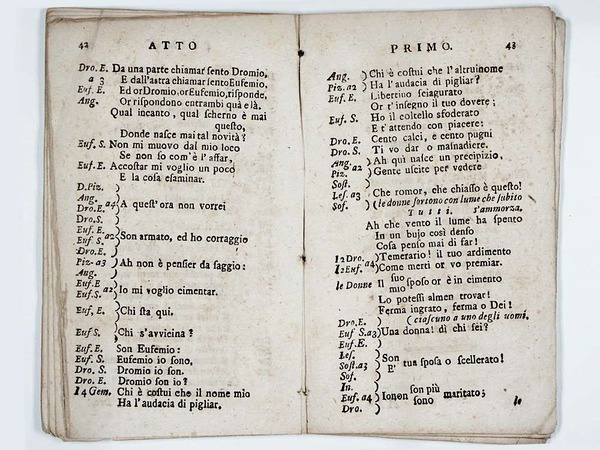 42 ATTO
Dro. E. Da una parte chiamar sento Dromio,
a 3 E dall'altra chiamar sento Eufemio,
Euf. E. Ed or Dromio, or Eufemio, risponde,
Ang. Or rispondono entrambi quà e là.
Qual incanto, qual scherno è mai
questo,
Donde nasce mai tal novità?
Euf. S. Non mi muovo dal mio loco
Se non so com'è l'affar,
Euf. E. Accostar mi voglio un poco
E la cosa esaminar.
D. Piz. )
Ang. )
Dro. E. a4 ) A quest'ora non vorrei
Dro. S. )
Euf. E. )
Euf S. a2 ) Son armato, ed ho corraggio
Dro. E. )
Piz- a3 ) Ah non è pensier da saggio:
Ang. )
Euf. E )
Euf. S. a2 ) Io mi voglio cimentar.
Euf, E. ) Chi sta qui.
Euf S. ) Chi s'avvicina?
Euf. E. Son Eufemio:
Euf. S. Eufemio io sono,
Dro. S. Dromio io son.
Dro. E. Dromio son io?
14 Gem. Chi è costui che il nome mio
Ha l'audacia di pigliar.
PRIMO. 43
Ang. ) Chi è costui che l'altrui nome
Piz. a2 ) Ha l'audacia di pigliar?
Euf. E. Libertino sciagurato
Or t'insegno il tuo dovere;
Euf. S. Ho il coltello sfoderato
E t'attendo con piacere:
Dro. E. Cento calci, e cento pugni
Dro. S. Ti vo dar o masnadiere.
Ang. ) Ah quì nasce un precipizio,
Piz. a2 ) Gente uscite per vedere
Sost. )
Les. a3 ) Che romor, che chiasso è questo!
Sof. ) (le donne sortono con lume che subito
Tutti. s'ammorza.
Ah che vento il lume ha spento
In un bujo così denso
Cosa penso mai di far!
12 Dro. ) Temerario! il tuo ardimento
12 Euf. a4 ) Come merti or vo premiar.
le Donne Il suo sposo or è in cimento
mio
Lo potessi almen trovar!
Ferma ingrato, ferma o Dei!
Dro. E. ) (ciascuno a uno degli uomi,
Euf S. a3 ) Una donna! di chi sei?
Euf. E. )
Les. ) Son
Sost. a3 ) E' tua sposa o scellerato!
Sof. )
In. ) son più
Euf. a4 ) Io non sono maritato;
Dro. )
lo